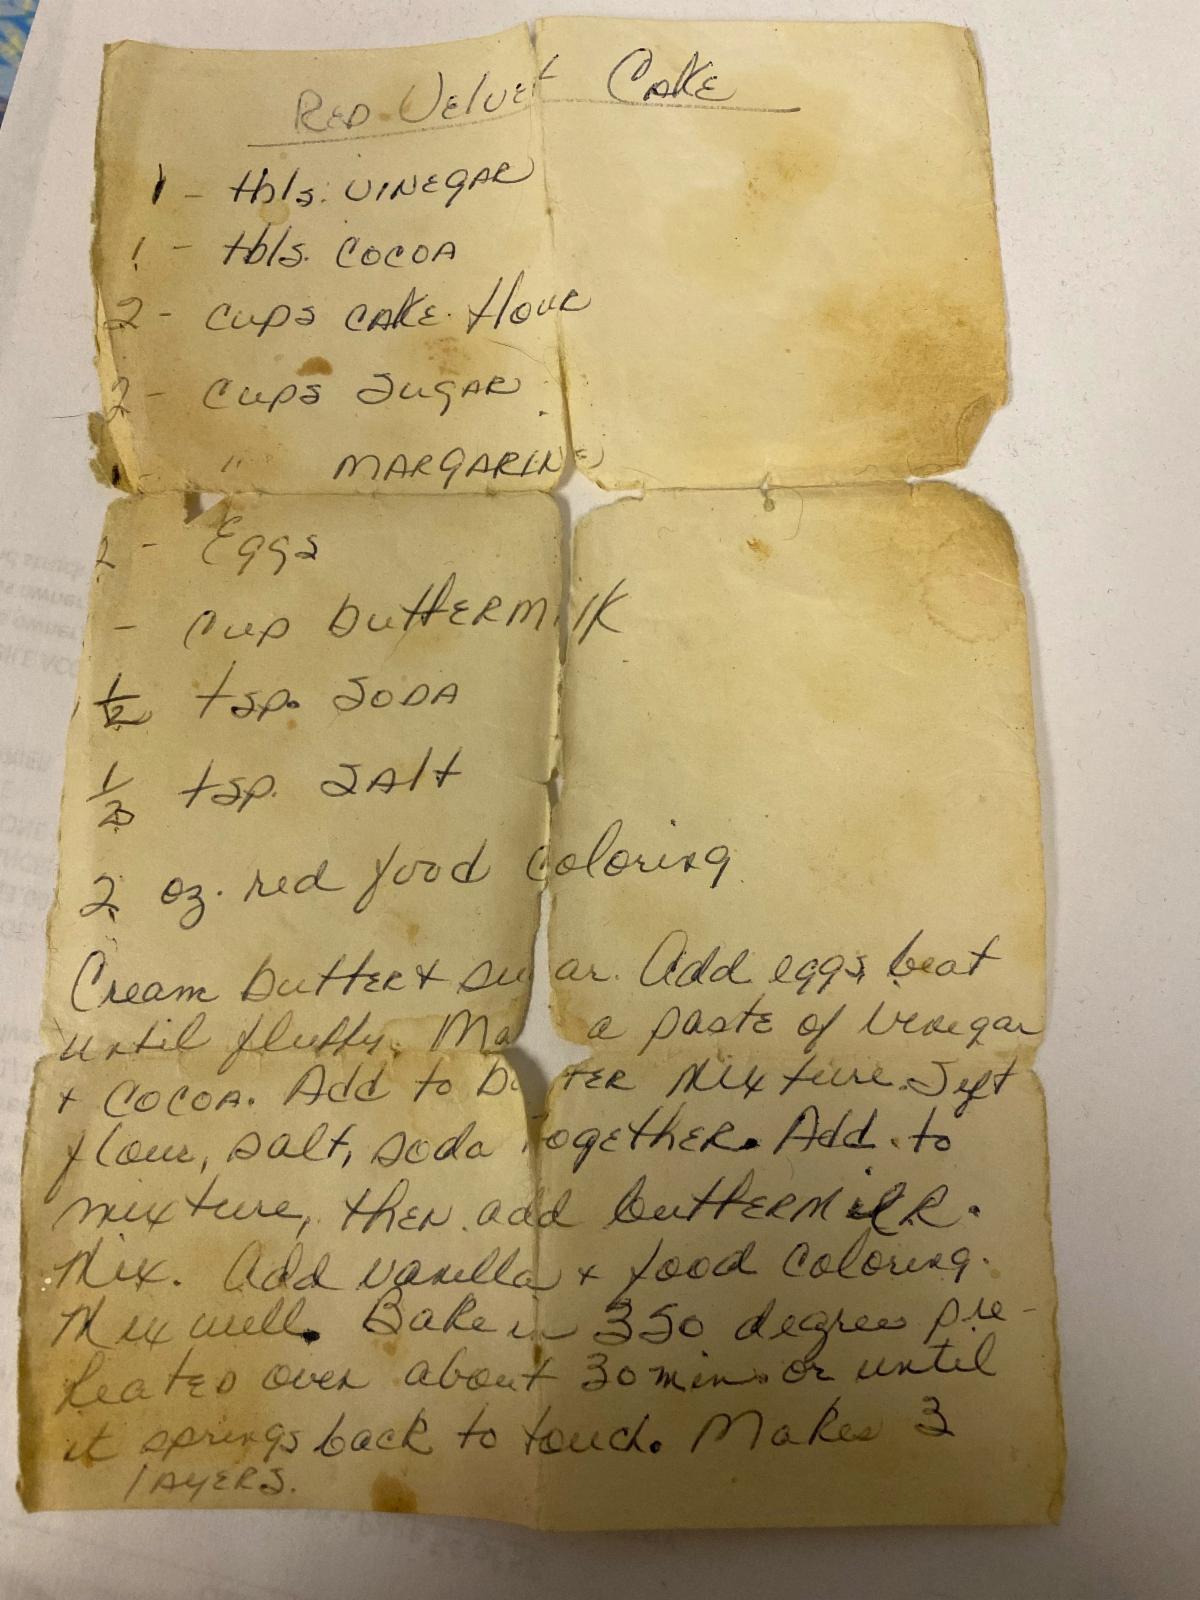 Red Velvet Cake
1 - tbls. VINEGAR
1 - tbls. COCOA
2 - cups CAKE flour
2 - cups SUGAR
- " MARGARINE
2 - Eggs
- cup buttERMilk
1/2 tsp. SODA
1/2 tsp. SAlt
2 oz. red food coloring
Cream buttER + su ar. Add eggs, beat
until fluffy. Ma a pastE of vinegar
+ COCOA. Add to bu tER mixture. Sift
flour, salt, soda togetHER. Add to
mixture, tHEN add buttERMilk.
Mix. Add vanilla + food coloring.
Mix well. Bake in 350 degree pre-
heatED oven about 30 min. or until
it springs back to touch. Makes 3
lAYERS.